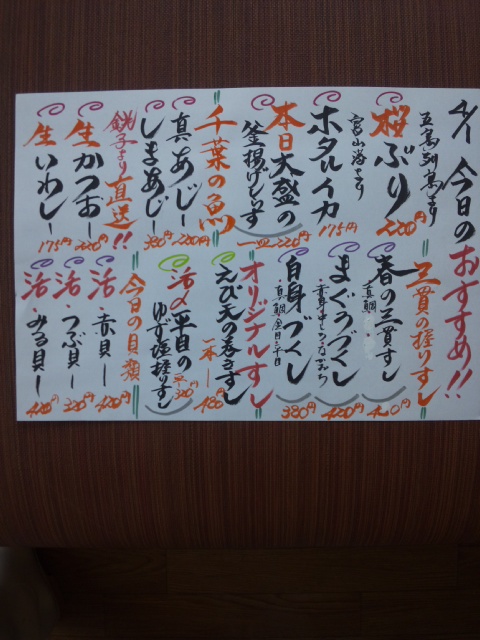 4/1 今日のおすすめ!!
五島列島より
桜ぶり
220円
富山湾より
ホタルイカ
175円
本日大盛の
釜揚げしらす
一皿 220円
千葉の魚
真あじ
220円
しまあじ
380円
銚子より直送!!
生かつお
220円
生いわし
175円
三貫の握りすし
春の三貫すし
真鯛
420円
まぐろづくし
赤身 中とろ
420円
白身づくし
380円
オリジナルすし
えび天の巻きすし
一本
480円
活〆平目の
ゆず塩握りすし
320円
今日の貝類
活赤貝
420円
活つぶ貝
320円
活みる貝
420円